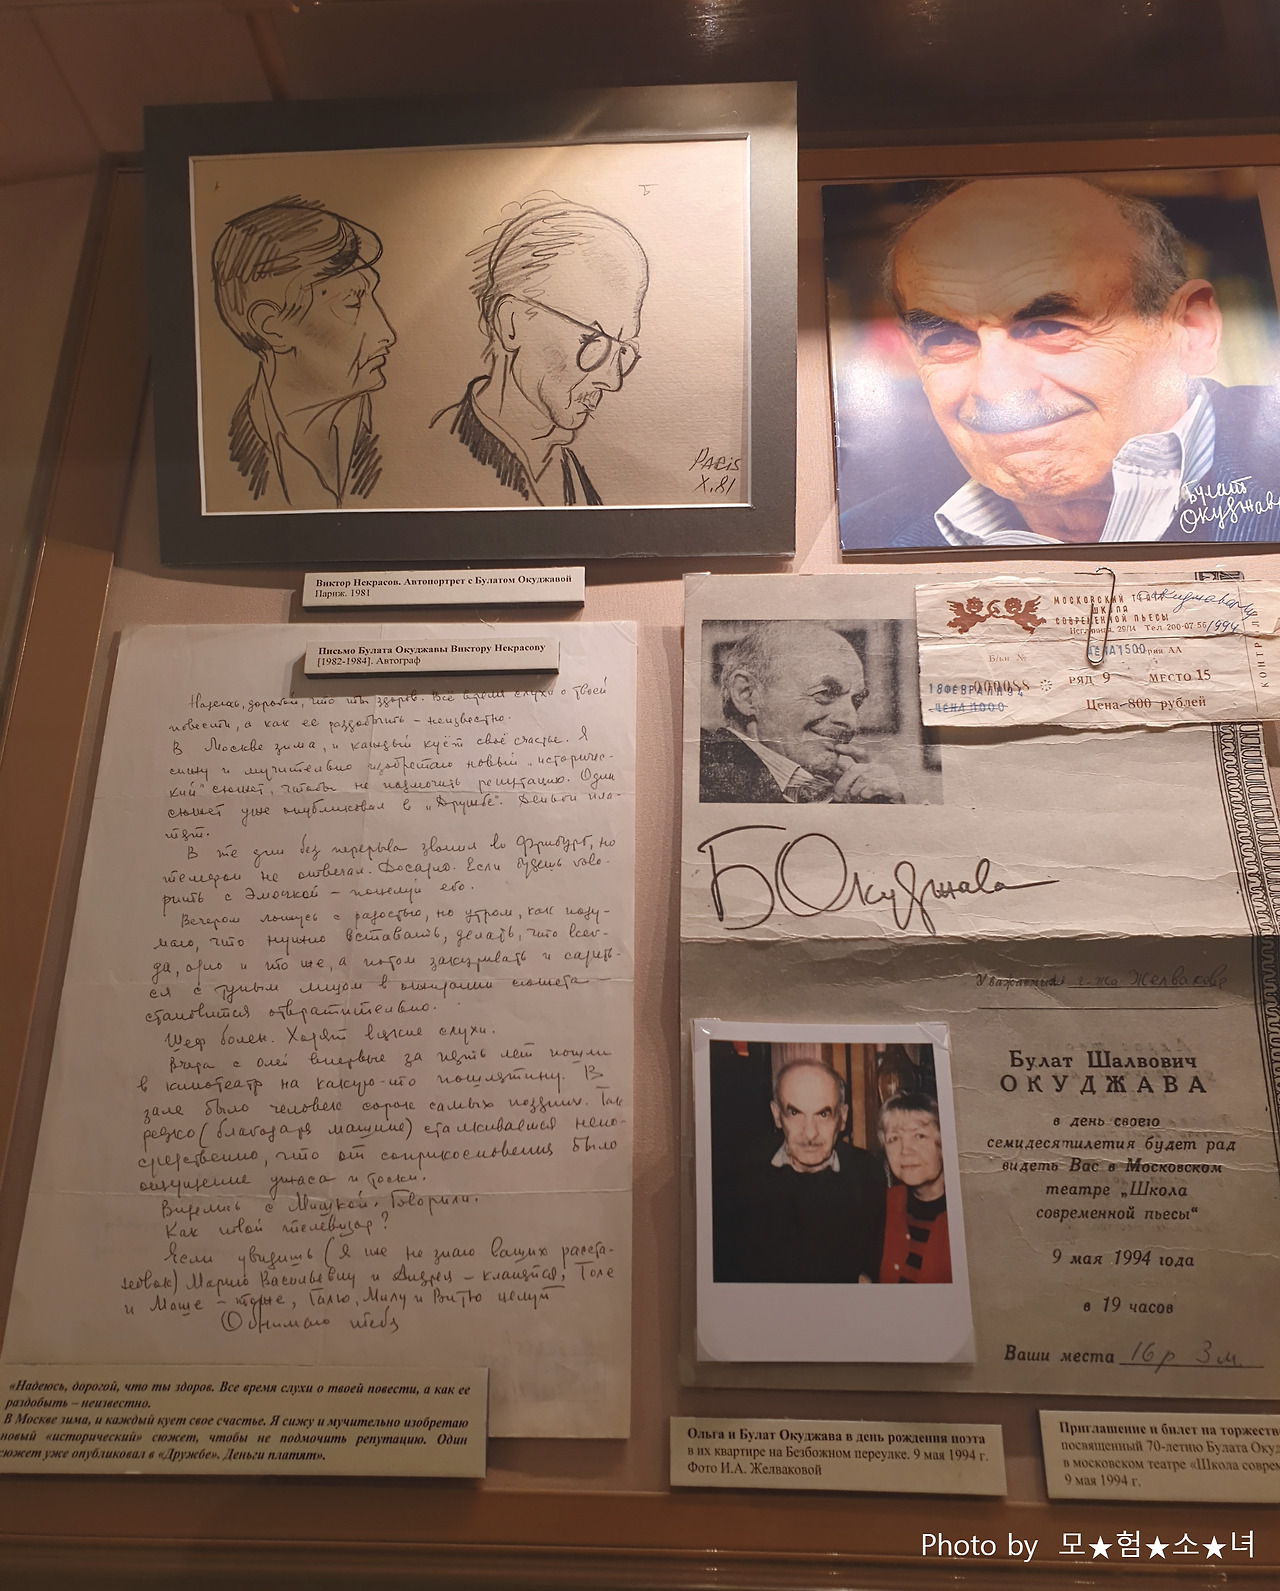 PARIS
X.81
Булат
Окуджава
Виктор Некрасов. Автопортрет с Булатом Окуджавой
Париж. 1981
Письмо Булата Окуджавы Виктору Некрасову
[1982-1984]. Автограф
Надеюсь, дорогой, что ты здоров. Всё время слухи о твоей
повести, а как её раздобыть – неизвестно.
В Москве зима, и каждый куёт своё счастье. Я
сижу и мучительно изобретаю новый „историчес-
кий" сюжет, чтобы не подмочить репутацию. Один
сюжет уже опубликовал в „Дружбе". Деньги пла-
тят.
В те дни без перерыва звонил во Фрибург, но
телефон не отвечал. Досадно. Если будешь гово-
рить с Эмочкой – поцелуй его.
Вечером ложусь с радостью, но утром, как поду-
маю, что нужно вставать, делать, что всег-
да, одно и то же, а потом закуривать и садить-
ся с тупым лицом в ожидании сюжета –
становится отвратительно.
Шеф болен. Ходят всякие слухи.
Вчера с Олей впервые за пять лет пошли
в кинотеатр на какую-то пошлятину. В
зале было человек сорок самых поздних. Так
редко (благодаря машине) сталкиваешься непо-
средственно, что от соприкосновения было
ощущение ужаса и тоски.
Виделись с Мишкой. Говорили.
Как твой телевизор?
Если увидишь (я же не знаю ваших расста-
новок) Марию Васильевну и Андрея – кланяйся, Толе
и Маше – тоже, Галю, Милу и Витю целуй
Обнимаю тебя
«Надеюсь, дорогой, что ты здоров. Все время слухи о твоей повести, а как ее
раздобыть – неизвестно.
В Москве зима, и каждый кует свое счастье. Я сижу и мучительно изобретаю
новый «исторический» сюжет, чтобы не подмочить репутацию. Один
сюжет уже опубликовал в «Дружбе». Деньги платят».
МОСКОВСКИЙ
ШКОЛА
СОВРЕМЕННОЙ ПЬЕСЫ
Неглинная, 29/14 Тел. 200-07-56
1994
ЦЕНА 1500
АА
РЯД 9 МЕСТО 15
000088
ЦЕНА 1000
Цена 800 рублей
Б Окуджава
Уважаемая г-жа Желвакова
Булат Шалвович
ОКУДЖАВА
в день своего
семидесятилетия будет рад
видеть Вас в Московском
театре „Школа
современной пьесы“
9 мая 1994 года
в 19 часов
Ваши места 16 р 3 м.
Ольга и Булат Окуджава в день рождения поэта
в их квартире на Безбожном переулке. 9 мая 1994 г.
Фото И.А. Желваковой
Приглашение и билет на торжеств
посвященный 70-летию Булата Окуд
в московском театре «Школа соврем
9 мая 1994 г.
Photo by 모★험★소★녀